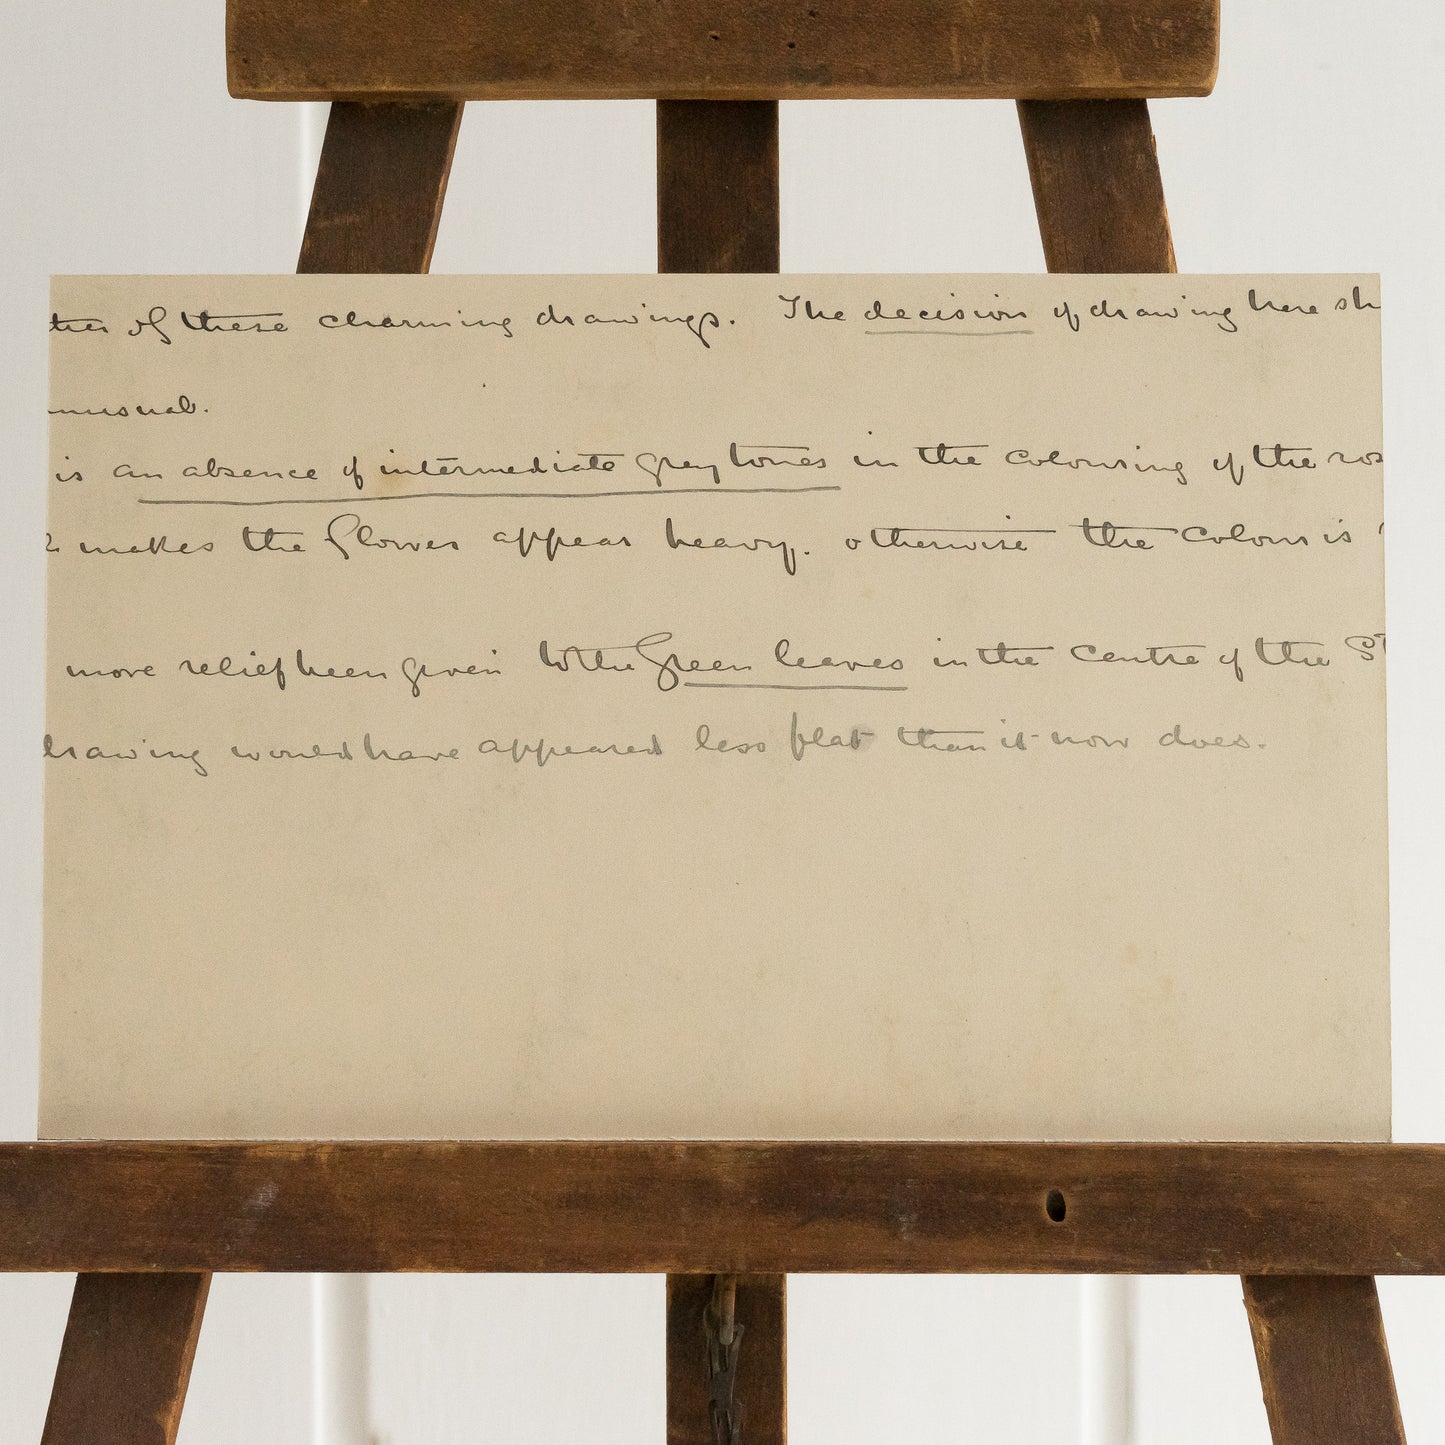 of these charming drawings. The decision of drawing here sh
unusual.
is an absence of intermediate grey tones in the colouring of the ros
makes the flower appear heavy. otherwise the colour is
more relief been given to the Green leaves in the centre of the St
drawing would have appeared less flat than it now does.